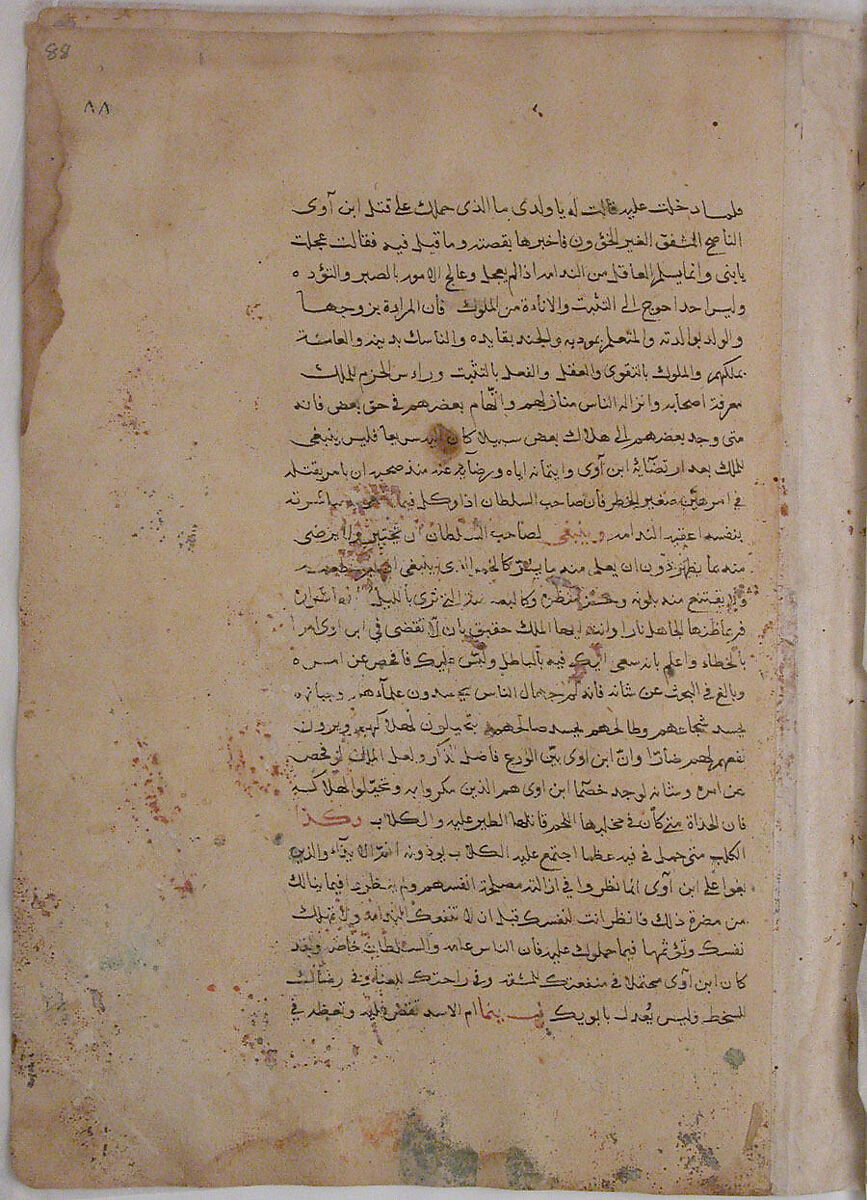 88
٨٨
فلما دخلت عليه قالت له يا ولدى ما الذى حملك على قتل ابن آوى
الناصح المشفق الغير الخؤون فاخبرها بقصته وما قيل فيه فقالت عجلت
يا بنى وانما يسلم العاقل من الندامه اذا لم يعجل وعالج الامور بالصبر والتؤده
وليس احد احوج الى التثبت والاناءة من الملوك فان المراة بزوجها
والولد بوالدته والمتعلم بموديه والجند بقايده والناسك بدينه والعامة
بملكهم والملوك بالتقوى والعقل والفعل بالتثبت وراس الحزم للملك
معرفة اصحابه وانزاله الناس منازلهم واتهام بعضهم فى حق بعض فانه
متى وجد بعضهم الى هلاك بعض سبيلا كان سريعا فليس ينبغى
للملك بعد ارتضائه ابن آوى وايتمانه اياه ورضايه عنه منذ صحبه ان يامر بقتله
فى امر هين صغير الخطر فان صاحب السلطان اذا وكل فيما مباشرته
بنفسه اعقبه الندامه وينبغى لصاحب السلطان ان يختبر ولا يرضى
منه بما يظهر دون ان يعلم منه ما ينبغى
ولا يقتنع منه بلونه وحسن منظره
فيظنها الجاهل نارا وانت ايها الملك حقيق بان لا تقضى فى ابن اوى امرا
بالخطاء واعلم بانه سعى اليك فيه بالباطل ولبس عليك فافحص عن امره
وبالغ فى البحث عن شانه فانه كم جهال الناس يحسدون علماءهم وجبانه
يحسد شجاعهم وطالحهم يحسد صالحهم يتحيلون لهلاكهم ويرون
نفعهم لهم ضارا وان ابن اوى بين الورع فاضل الذكر ولعل الملك لو فحص
عن امره وشانه لوجد خصما ابن اوى هم الذين مكروا به وتحيلوا لهلاكه
فان الحداة متى كان فى مخلبها اللحم قاتلها الطير عليه والكلاب وكذا
الكلب متى حمل فى فيه عظما اجتمع عليه الكلاب يوذونه والذين
بغوا على ابن آوى انما نظروا فى ازالته مصلحة انفسهم ولم ينظروا فيما ينالك
من مضرة ذلك فانظر انت لنفسك قبل ان لا تنفعك الندامه ولا تهلك
نفسك وتوثمها فيما حملوك عليه فان الناس عامه والسلطان خاصه وقد
كان ابن آوى محتملا فى منفعتك للمشقه وفى راحتك للعناء وفى رضائك
للسخط وليس يعدل بابويك فبينما ام الاسد تقص عليه وتعظه فى